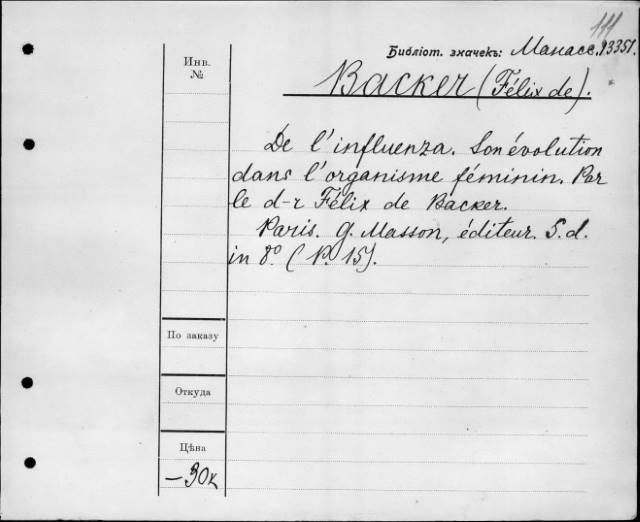 111
Библіот. значекъ: Манасс. 13351.
Backer (Félix de).
Инв.
№
De l'influenza. Son évolution
dans l'organisme féminin. Par
le d-r Félix de Backer.
Paris. G. Masson, éditeur. S. d.
in 8º. (P. 15).
По заказу
Откуда
Цѣна
— 30 к